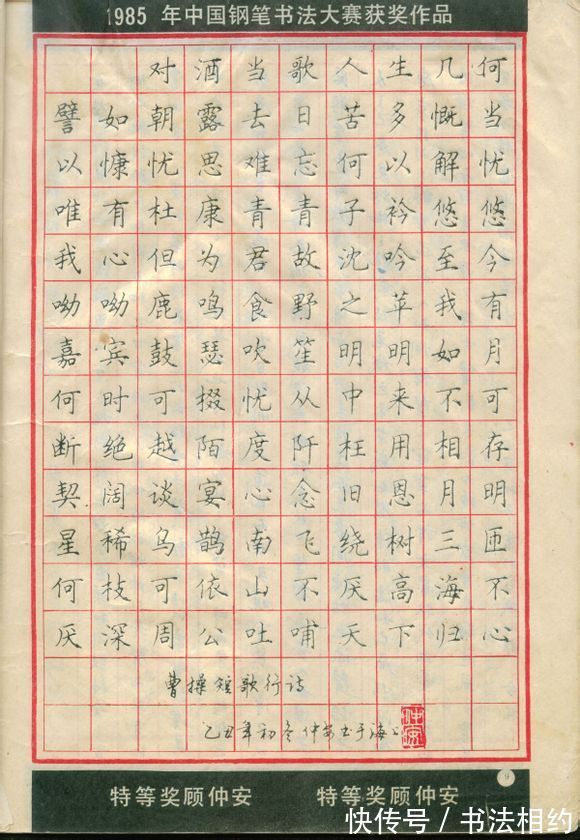 1985 年中国钢笔书法大赛获奖作品
对酒当歌人生几何
譬如朝露去日苦多慨当
以慷忧思难忘何以解忧
唯有杜康青青子衿悠悠
我心但为君故沈吟至今
呦呦鹿鸣食野之苹我有
嘉宾鼓瑟吹笙明明如月
何时可掇忧从中来不可
断绝越陌度阡枉用相存
契阔谈宴心念旧恩月明
星稀乌鹊南飞绕树三匝
何枝可依山不厌高海不
厌深周公吐哺天下归心
曹操短歌行诗
乙丑年初冬仲安书于海上
仲安
特等奖顾仲安 特等奖顾仲安
快传号 / 书法相约